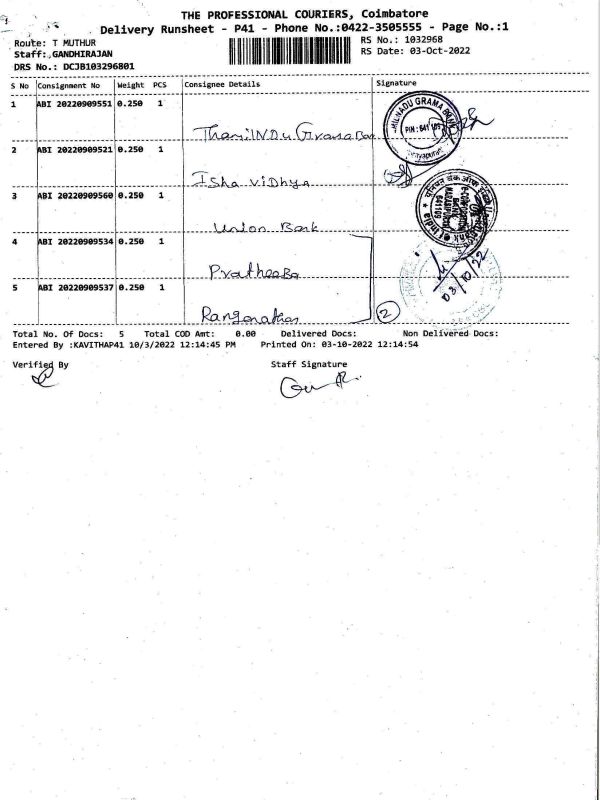 THE PROFESSIONAL COURIERS, Coimbatore
Delivery Runsheet - P41 - Phone No.:0422-3505555 - Page No.:1
Route: T MUTHUR
RS No.: 1032968
Staff:,GANDHIRAJAN
RS Date: 03-Oct-2022
DRS No.: DCJB103296801
S No Consignment No Weight PCS Consignee Details Signature
1 ABI 20220909551 0.250 1
ThamilNDu Grama Bank
PIN: 641 105
2 ABI 20220909521 0.250 1
Isha ViDhya
3 ABI 20220909560 0.250 1
Union Bank
641105
4 ABI 20220909534 0.250 1
PratheeBa
03/10/22
5 ABI 20220909537 0.250 1
Ranganathan
2
Total No. Of Docs: 5 Total COD Amt: 0.00 Delivered Docs: Non Delivered Docs:
Entered By :KAVITHAP41 10/3/2022 12:14:45 PM Printed On: 03-10-2022 12:14:54
Verified By Staff Signature